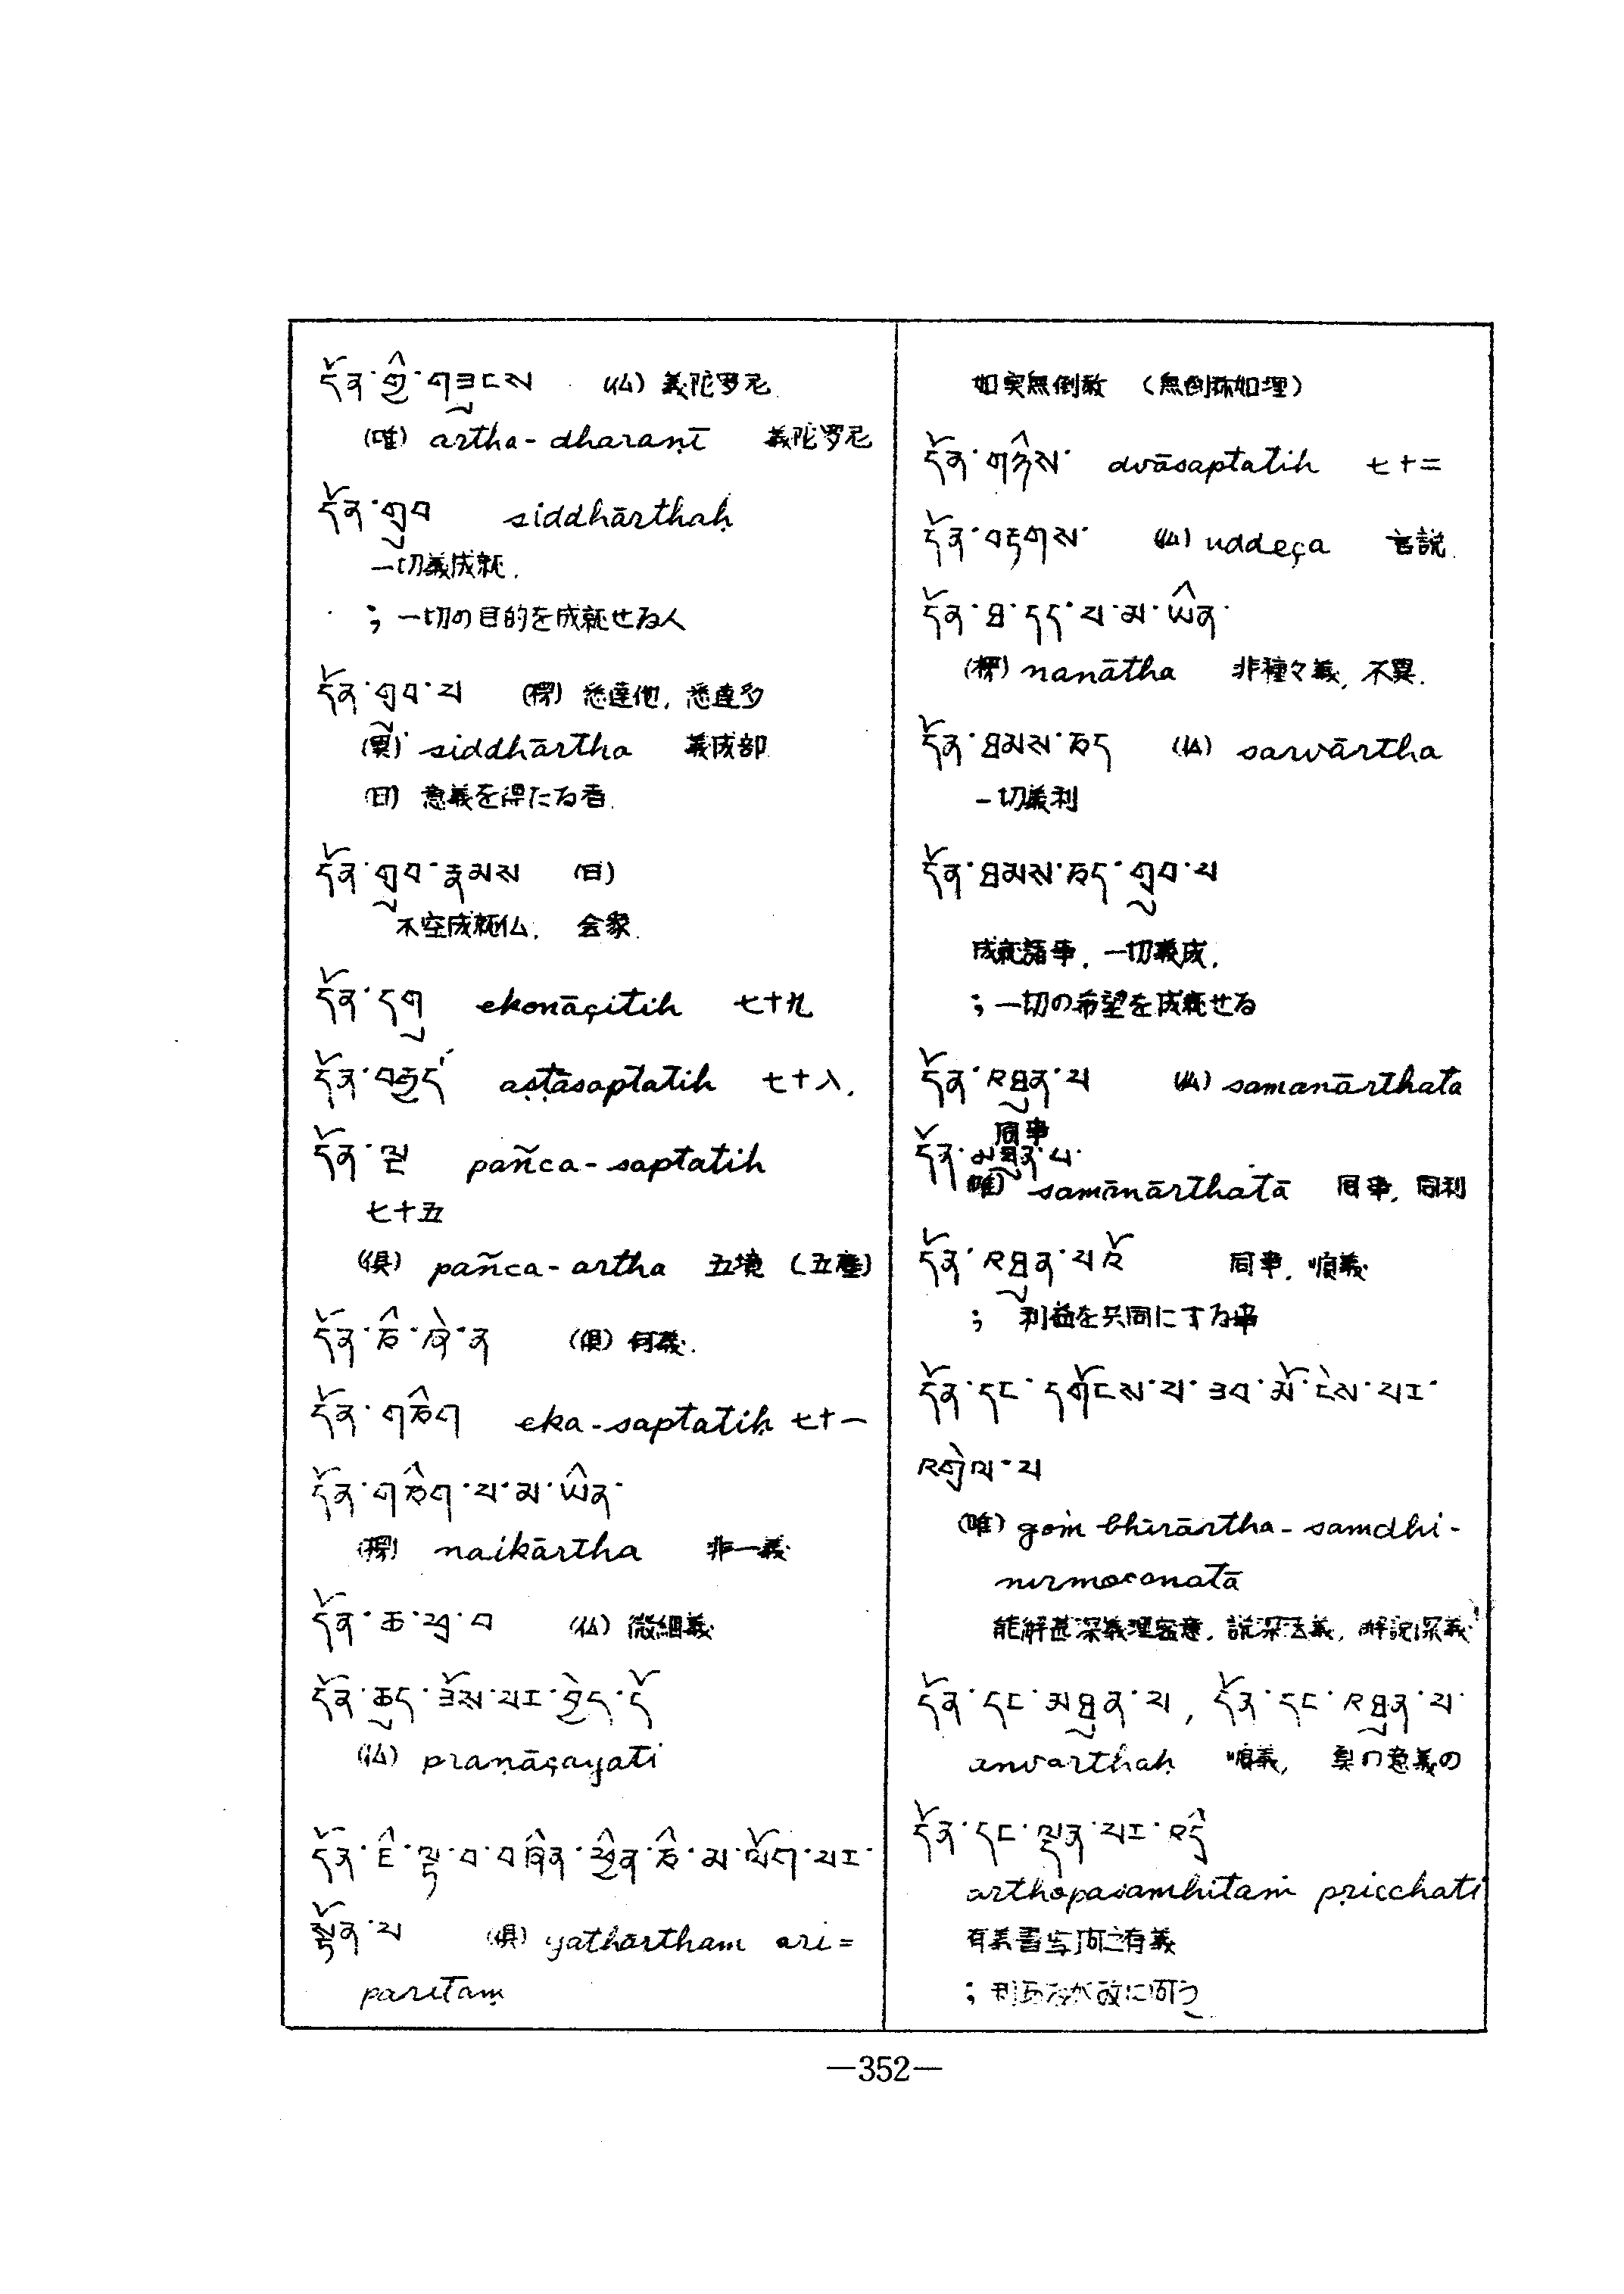 དོན་གྱི་གཟུངས (仏) 義陀罗尼
(唯) artha-dharaṇī 義陀罗尼
དོན་གྲུབ siddhārthaḥ
一切義成就.
; 一切の目的を成就せる人
དོན་གྲུབ་པ (稱) 悉達他, 悉達多
(異) siddhārtha 義成部
(日) 意義を得たる者.
དོན་གྲུབ་རྣམས (日)
不空成就仏, 会衆.
དོན་དགུ ekonāçitih 七十九
དོན་བརྒྱད aṣṭāsaptatih 七十八.
དོན་ལྔ pañca-saptatih
七十五
(倶) pañca-artha 五境 (五塵)
དོན་ཅི་ཞེ་ན (倶) 何義.
དོན་གཅིག eka-saptatiḥ 七十一
དོན་གཅིག་པ་མ་ཡིན་
(稱) naikārtha 非一義
དོན་ཆ་ཕྲ་བ (仏) 微細義
དོན་ཆུད་ཟོས་པར་བྱེད་དོ
(仏) praṇāçayati
དོན་ཇི་ལྟ་བ་བཞིན་ཕྱིན་ཅི་མ་ལོག་པར་
སྟོན་པ (倶) yathārtham ari=
parītaṃ
如実無倒教 (無倒称如理)
དོན་གཉིས་ dvāsaptatih 七十二
དོན་བརྟགས་ (仏) uddeça 言説.
དོན་ཐ་དད་པ་མ་ཡིན་
(稱) nanātha 非種々義, 不異.
དོན་ཐམས་ཅད (仏) sarvārtha
一切義利
དོན་ཐམས་ཅད་གྲུབ་པ
成就諸事, 一切義成,
; 一切の希望を成就せる
དོན་འཐུན་པ (仏) samanārthata
同事
དོན་མཐུན་པ་
(唯) samānārthatā 同事, 同利
དོན་འཐུན་པའོ 同事, 順義
; 利益を共同にする事
དོན་དང་དགོངས་པ་ཟབ་མོ་ངེས་པར་
འགྲེལ་པ
(唯) gaṁbhīrārtha-samdhi-
nirmocanatā
能解甚深義理密意, 説深法義, 解説深義
དོན་དང་མཐུན་པ, དོན་དང་འཐུན་པ་
anvarthaḥ 順義, 真の意義の
དོན་དང་ལྡན་པར་འདྲི
arthopasamhitaṁ pṛicchati
; 利あるが故に問う
—352—